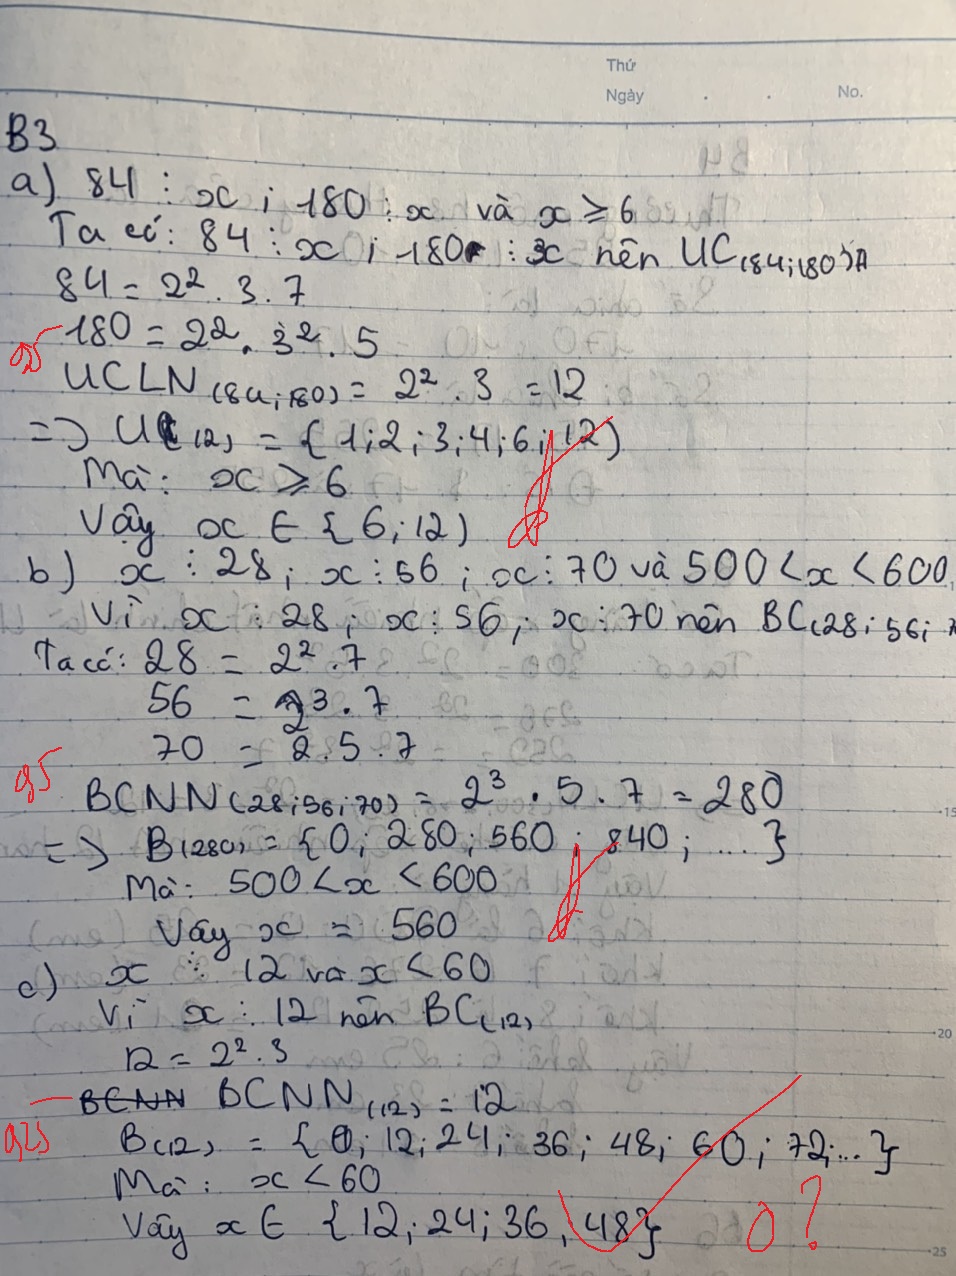 Thứ
Ngày . . No.
B3
a) 84 ⋮ x ; 180 ⋮ x và x ≥ 6
Ta có: 84 ⋮ x ; 180 ⋮ x nên UC(84;180)
84 = 2² . 3 . 7
180 = 2² . 3² . 5
UCLN(84;180) = 2² . 3 = 12
=> UC(12) = { 1; 2 ; 3 ; 4 ; 6 ; 12 )
Mà: x ≥ 6
Vậy x ∈ { 6 ; 12 )
b) x ⋮ 28 ; x ⋮ 56 ; x ⋮ 70 và 500 < x < 600
Vì x ⋮ 28 ; x ⋮ 56 ; x ⋮ 70 nên BC(28 ; 56 ;
Ta có: 28 = 2² . 7
56 = 2³ . 7
70 = 2 . 5 . 7
95
BCNN(28;56;70) = 2³ . 5 . 7 = 280
=> B(280) = { 0 ; 280 ; 560 ; 840 ; .... }
Mà: 500 < x < 600
Vậy x = 560
c) x ⋮ 12 và x < 60
Vì x ⋮ 12 nên BC(12)
12 = 2² . 3
BCNN BCNN(12) = 12
925
B(12) = { 0; 12; 24; 36; 48; 60; 72;... }
Mà: x < 60
Vậy x ∈ { 12; 24; 36, 48}
0 ?
15
20
25